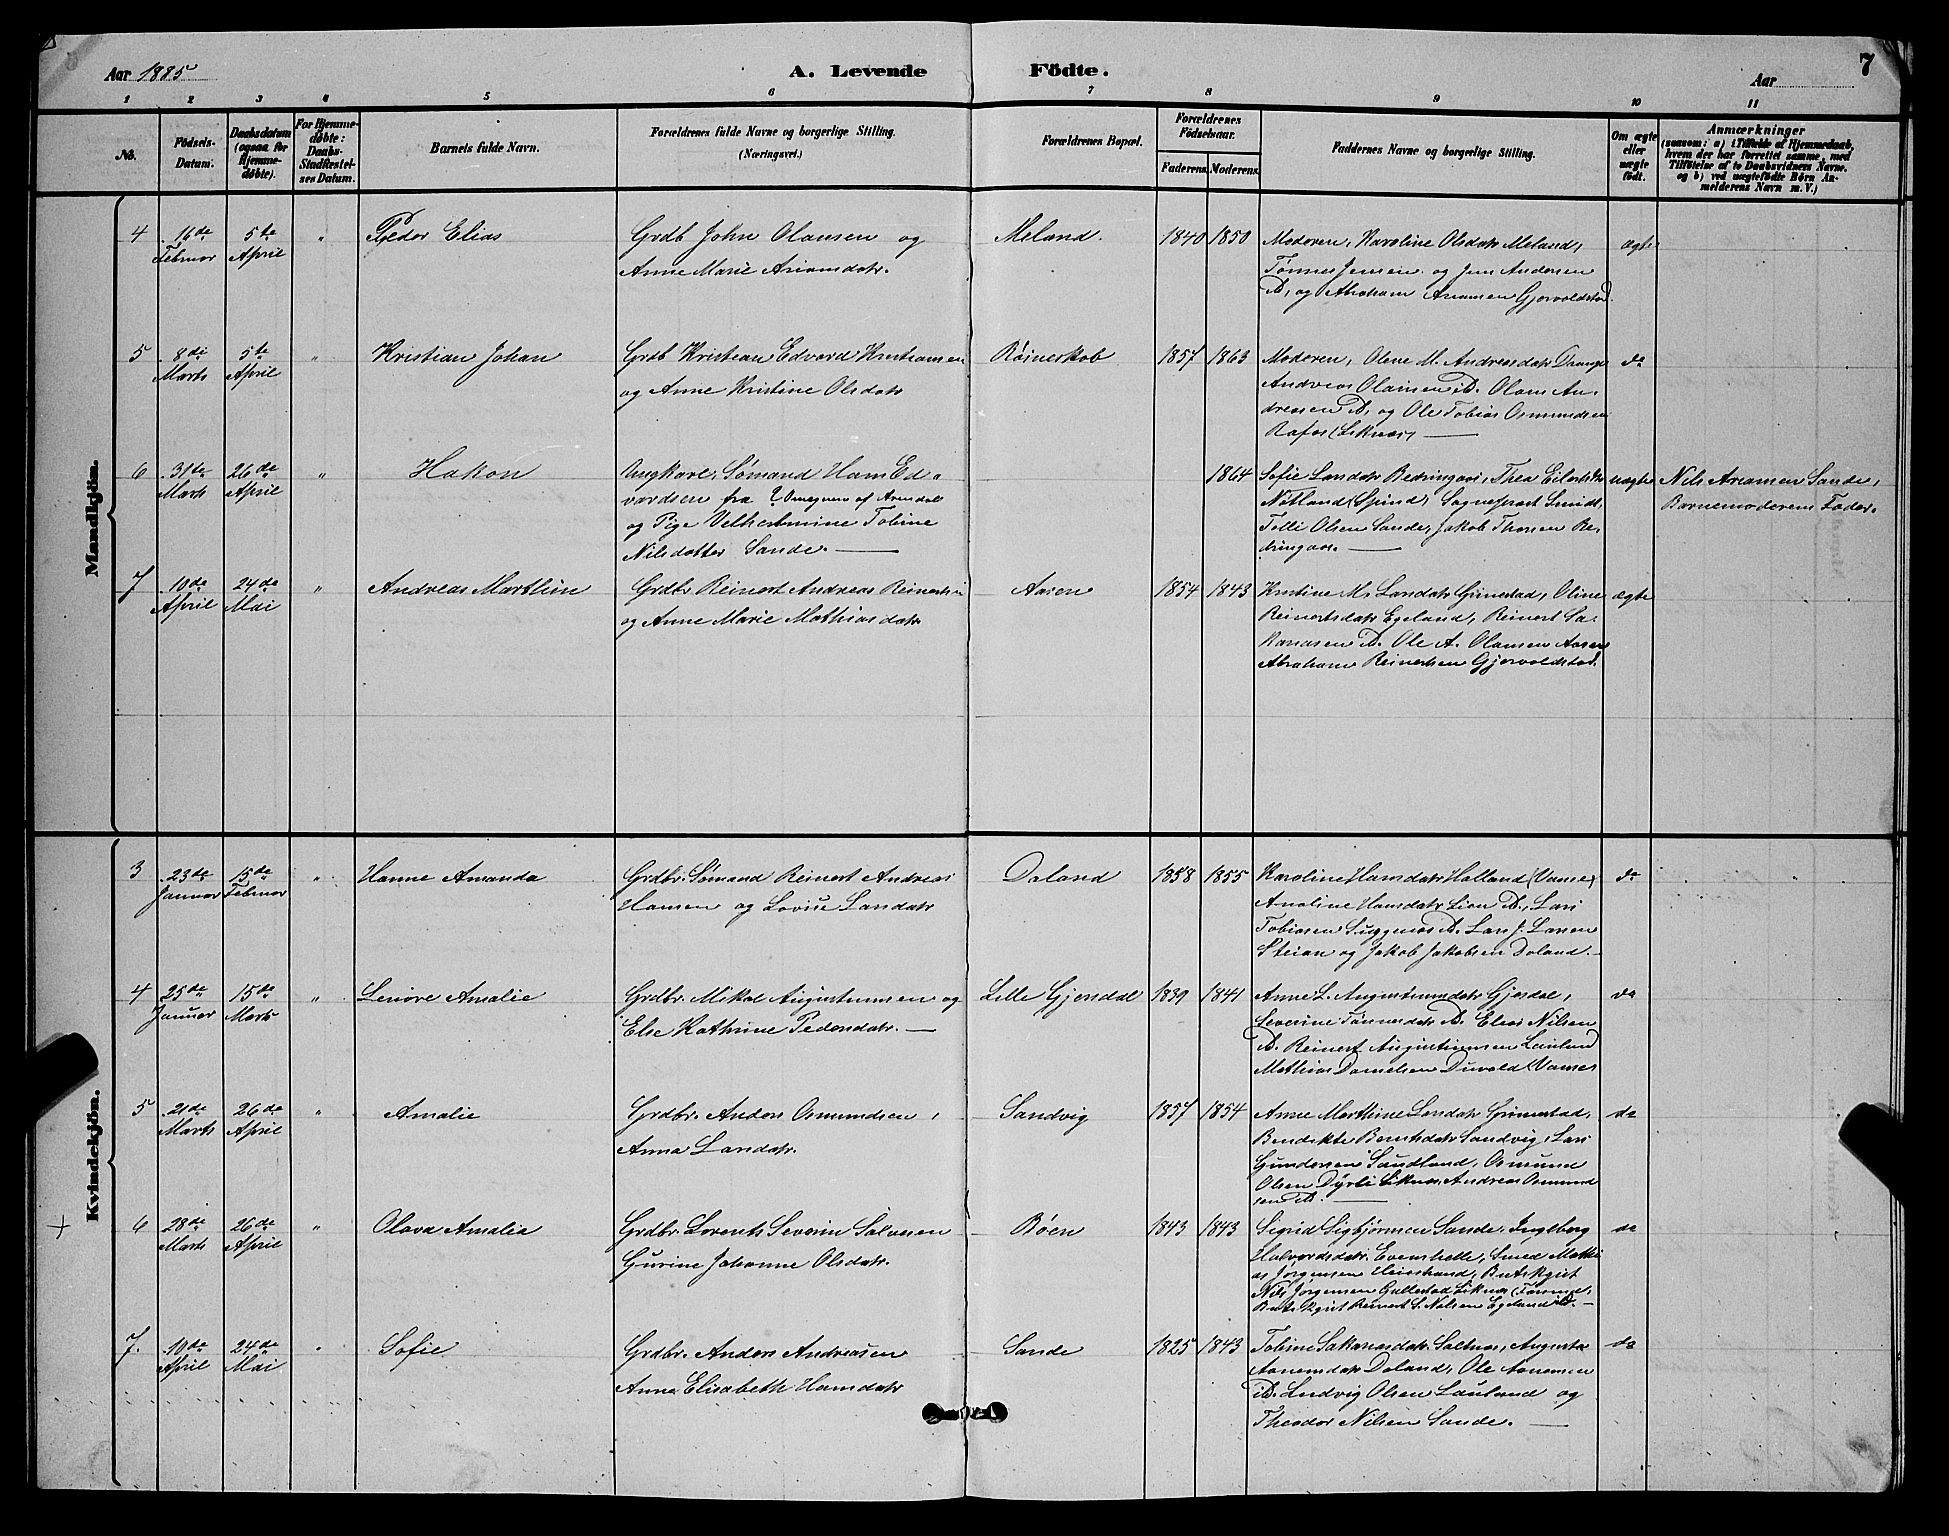 Aar 1885
A. Levende Födte.
Aar
7
1 2 3 4 5 6 7 8 9 10 11
No.
Födsels-Datum.
Daabsdatum (ogsaa for Hjemme-döbte).
For Hjemme-döbte: Daabs-Stadfæstel-ses Datum.
Barnets fulde Navn.
Forældrenes fulde Navne og borgerlige Stilling. (Næringsvei.)
Forældrenes Bopæl.
Forældrenes Födselsaar.
Faderens. Moderens.
Faddernes Navne og borgerlige Stilling.
Om ægte eller uægte födt.
Anmærkninger
(saasom: a) i Tilfælde af Hjemmedaab, hvem der har forrettet samme, med Tilföielse af to Daabsvidners Navne. og b) ved uægtefödte Börn An-melderens Navn m. V.)
Mandkjön.
4 16de Februar 5te April " Peder Elias
Grdb John Olausen og
Anne Marie Ariamsdatr.
Meland. 1840 1850
Moderen, Karoline Olsdatr Meland,
Tønnes Jensen og Jens Andersen
D, og Abraham Ariamsen Gjervoldstad.
ægte
5 8di Marts 5te April " Kristian Johan
Grdb Kristian Edvard Kristiansen
og Anne Kristine Olsdatr
Røineskob 1857 1863
Moderen, Olene M. Andreasdatr Drange
Andreas Olaisen D. Olaus An-
dreassen D, og Ole Tobias Osmundsen
Rafos (Liknæs)
do
6 31te Marts 26de April " Hakon
Ungkarl, Sømand Hans Ed-
vardsen fra Omegnen af Arendal
og Pige Velhelmine Tobine
Nilsdatter Sande.
1864
Sofie Larsdatr Bedringaas, Thea Eilertsdtr
Nitland (Spind), Sogneprest Smidt,
Tolli Olsen Sande, Jakob Thorsen Be-
dringaas.
uægte
Nils Ariansen Sande,
Barnemoderens Fader.
7 10de April 24de Mai " Andreas Marthin
Grdbr Reinert Andreas Reinertsen
og Anne Marie Mathiasdatr
Aasen 1854 1843
Kristine M. Larsdatr Grimestad, Oline
Reinertsdatr Egeland, Reinert Sa-
kariasen D. Ole A. Olausen Aasen
Abraham Reinertsen Gjervoldstad.
ægte
Kvindekjön.
3 23de Januar 15de Februar " Hanne Amanda
Grdbr. Sømand Reinert Andreas
Hansen og Lovise Larsdatr
Daland 1858 1855
Karoline Hansdatr Holland (Vanse)
Anoline Hansdatr Lien D., Lars
Tobiasen D. Lars J. Larsen
og Jakob Jakobsen Daland.
do
4 25de Januar 15de Marts " Lenore Amalie
Grdbr. Mikal Augustinusen og
Else Kathrine Pedersdatr.
Lille Gjersdal 1839 1841
Anne L. Augustinusdatr Gjersdal,
Severine Tønnesdatr D. Elias Nilsen
D. Reinert Augustinusen Lauland
Mathias Danielsen Duvold (Vanse)
do
5 21de Marts 26de April " Amalie
Grdbr. Anders Osmundsen,
Anna Larsdatr.
Sandvig 1857 1854
Anne Marthine Larsdatr Grimestad,
Bendikte Berntsdatr Sandvig, Lars
Gundersen Sandland, Osmund
Olsen Dyrli Liknæs, Andreas Osmund
sen D.
do
+ 6 28de Marts 26de April " Olava Amalia
Grdbr. Lorents Severin Salvesen
Gurine Johanne Olsdatr.
Røen 1843 1843
Sigrid Sigbjørnsen Sande, Ingeborg
Halvordsdatr. Evenshelle, Smed Mathi
as Jørgensen Heirstrand,
Nils Jørgensen Gullestad Liknæs
Reinert S. Nilsen Egeland D.
do
7. 10de April 24de Mai " Sofie
Grdbr. Anders Andreasen
Anna Elisabeth Hansdatr
Sande 1825 1843
Tobine Sakariasdatr Saltnæs, Augusta
Aanensdatr Daland, Ole Aanensen
D. Ludvig Olsen Lauland og
Theodor Nilsen Sande.
do